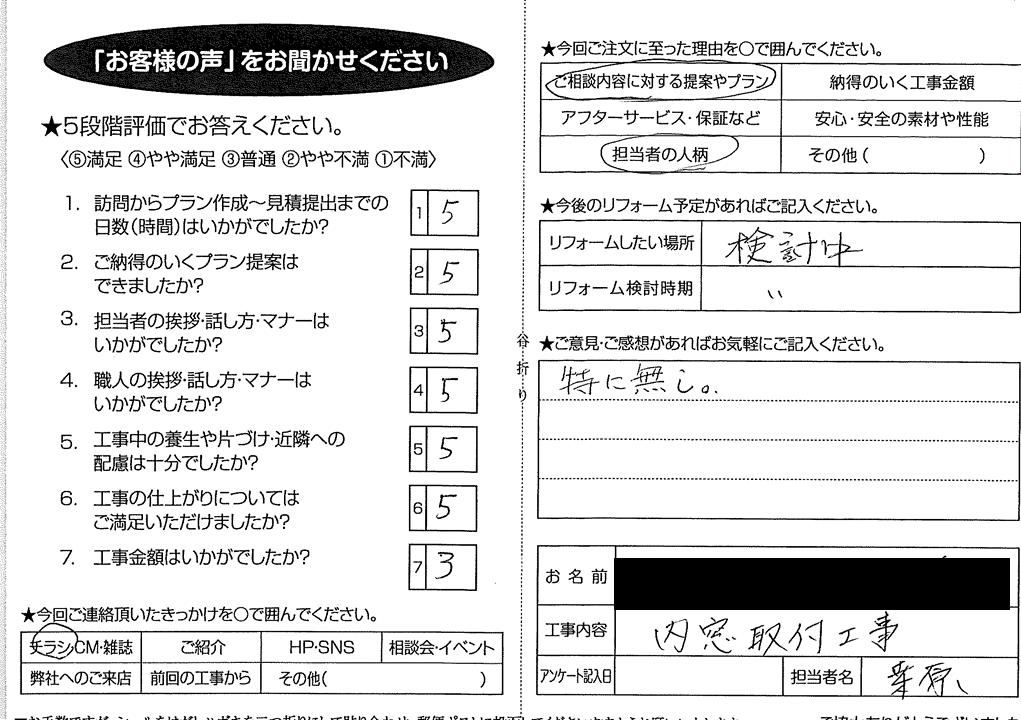 「お客様の声」をお聞かせください
★5段階評価でお答えください。
〈⑤満足 ④やや満足 ③普通 ②やや不満 ①不満〉
1. 訪問からプラン作成～見積提出までの
日数(時間)はいかがでしたか?
1 5
2. ご納得のいくプラン提案は
できましたか?
2 5
3. 担当者の挨拶・話し方・マナーは
いかがでしたか?
3 5
4. 職人の挨拶・話し方・マナーは
いかがでしたか?
4 5
5. 工事中の養生や片づけ・近隣への
配慮は十分でしたか?
5 5
6. 工事の仕上がりについては
ご満足いただけましたか?
6 5
7. 工事金額はいかがでしたか?
7 3
★今回ご連絡頂いたきっかけを○で囲んでください。
チラシCM・雑誌 ご紹介 HP・SNS 相談会・イベント
弊社へのご来店 前回の工事から その他( )
谷折り
★今回ご注文に至った理由を○で囲んでください。
ご相談内容に対する提案やプラン 納得のいく工事金額
アフターサービス・保証など 安心・安全の素材や性能
担当者の人柄 その他( )
★今後のリフォーム予定があればご記入ください。
リフォームしたい場所 検討中
リフォーム検討時期 〃
★ご意見・ご感想があればお気軽にご記入ください。
特に無し。
お名前
工事内容 内窓取付工事
アンケート記入日 担当者名